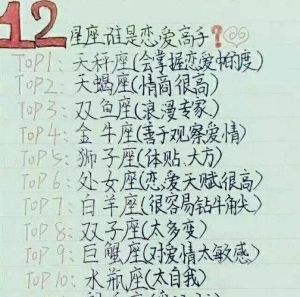 12星座谁是恋爱高手?
TOP1:天秤座(会掌握恋爱的度)
TOP2:天蝎座(情商很高)
TOP3:双鱼座(浪漫专家)
TOP4:金牛座(善于观察爱情)
TOP5:狮子座(体贴.大方)
TOP6:处女座(恋爱天赋很高)
TOP7:白羊座(很容易钻牛角尖)
TOP8:双子座(太多变)
TOP9:巨蟹座(对爱情太敏感)
TOP10:水瓶座(太自我)